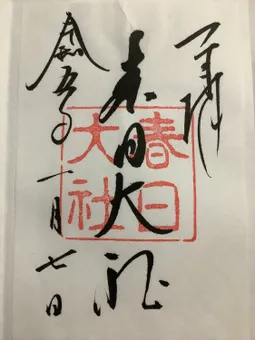 奉拝
春日大社
春日
大社
令和五年
十一月七日